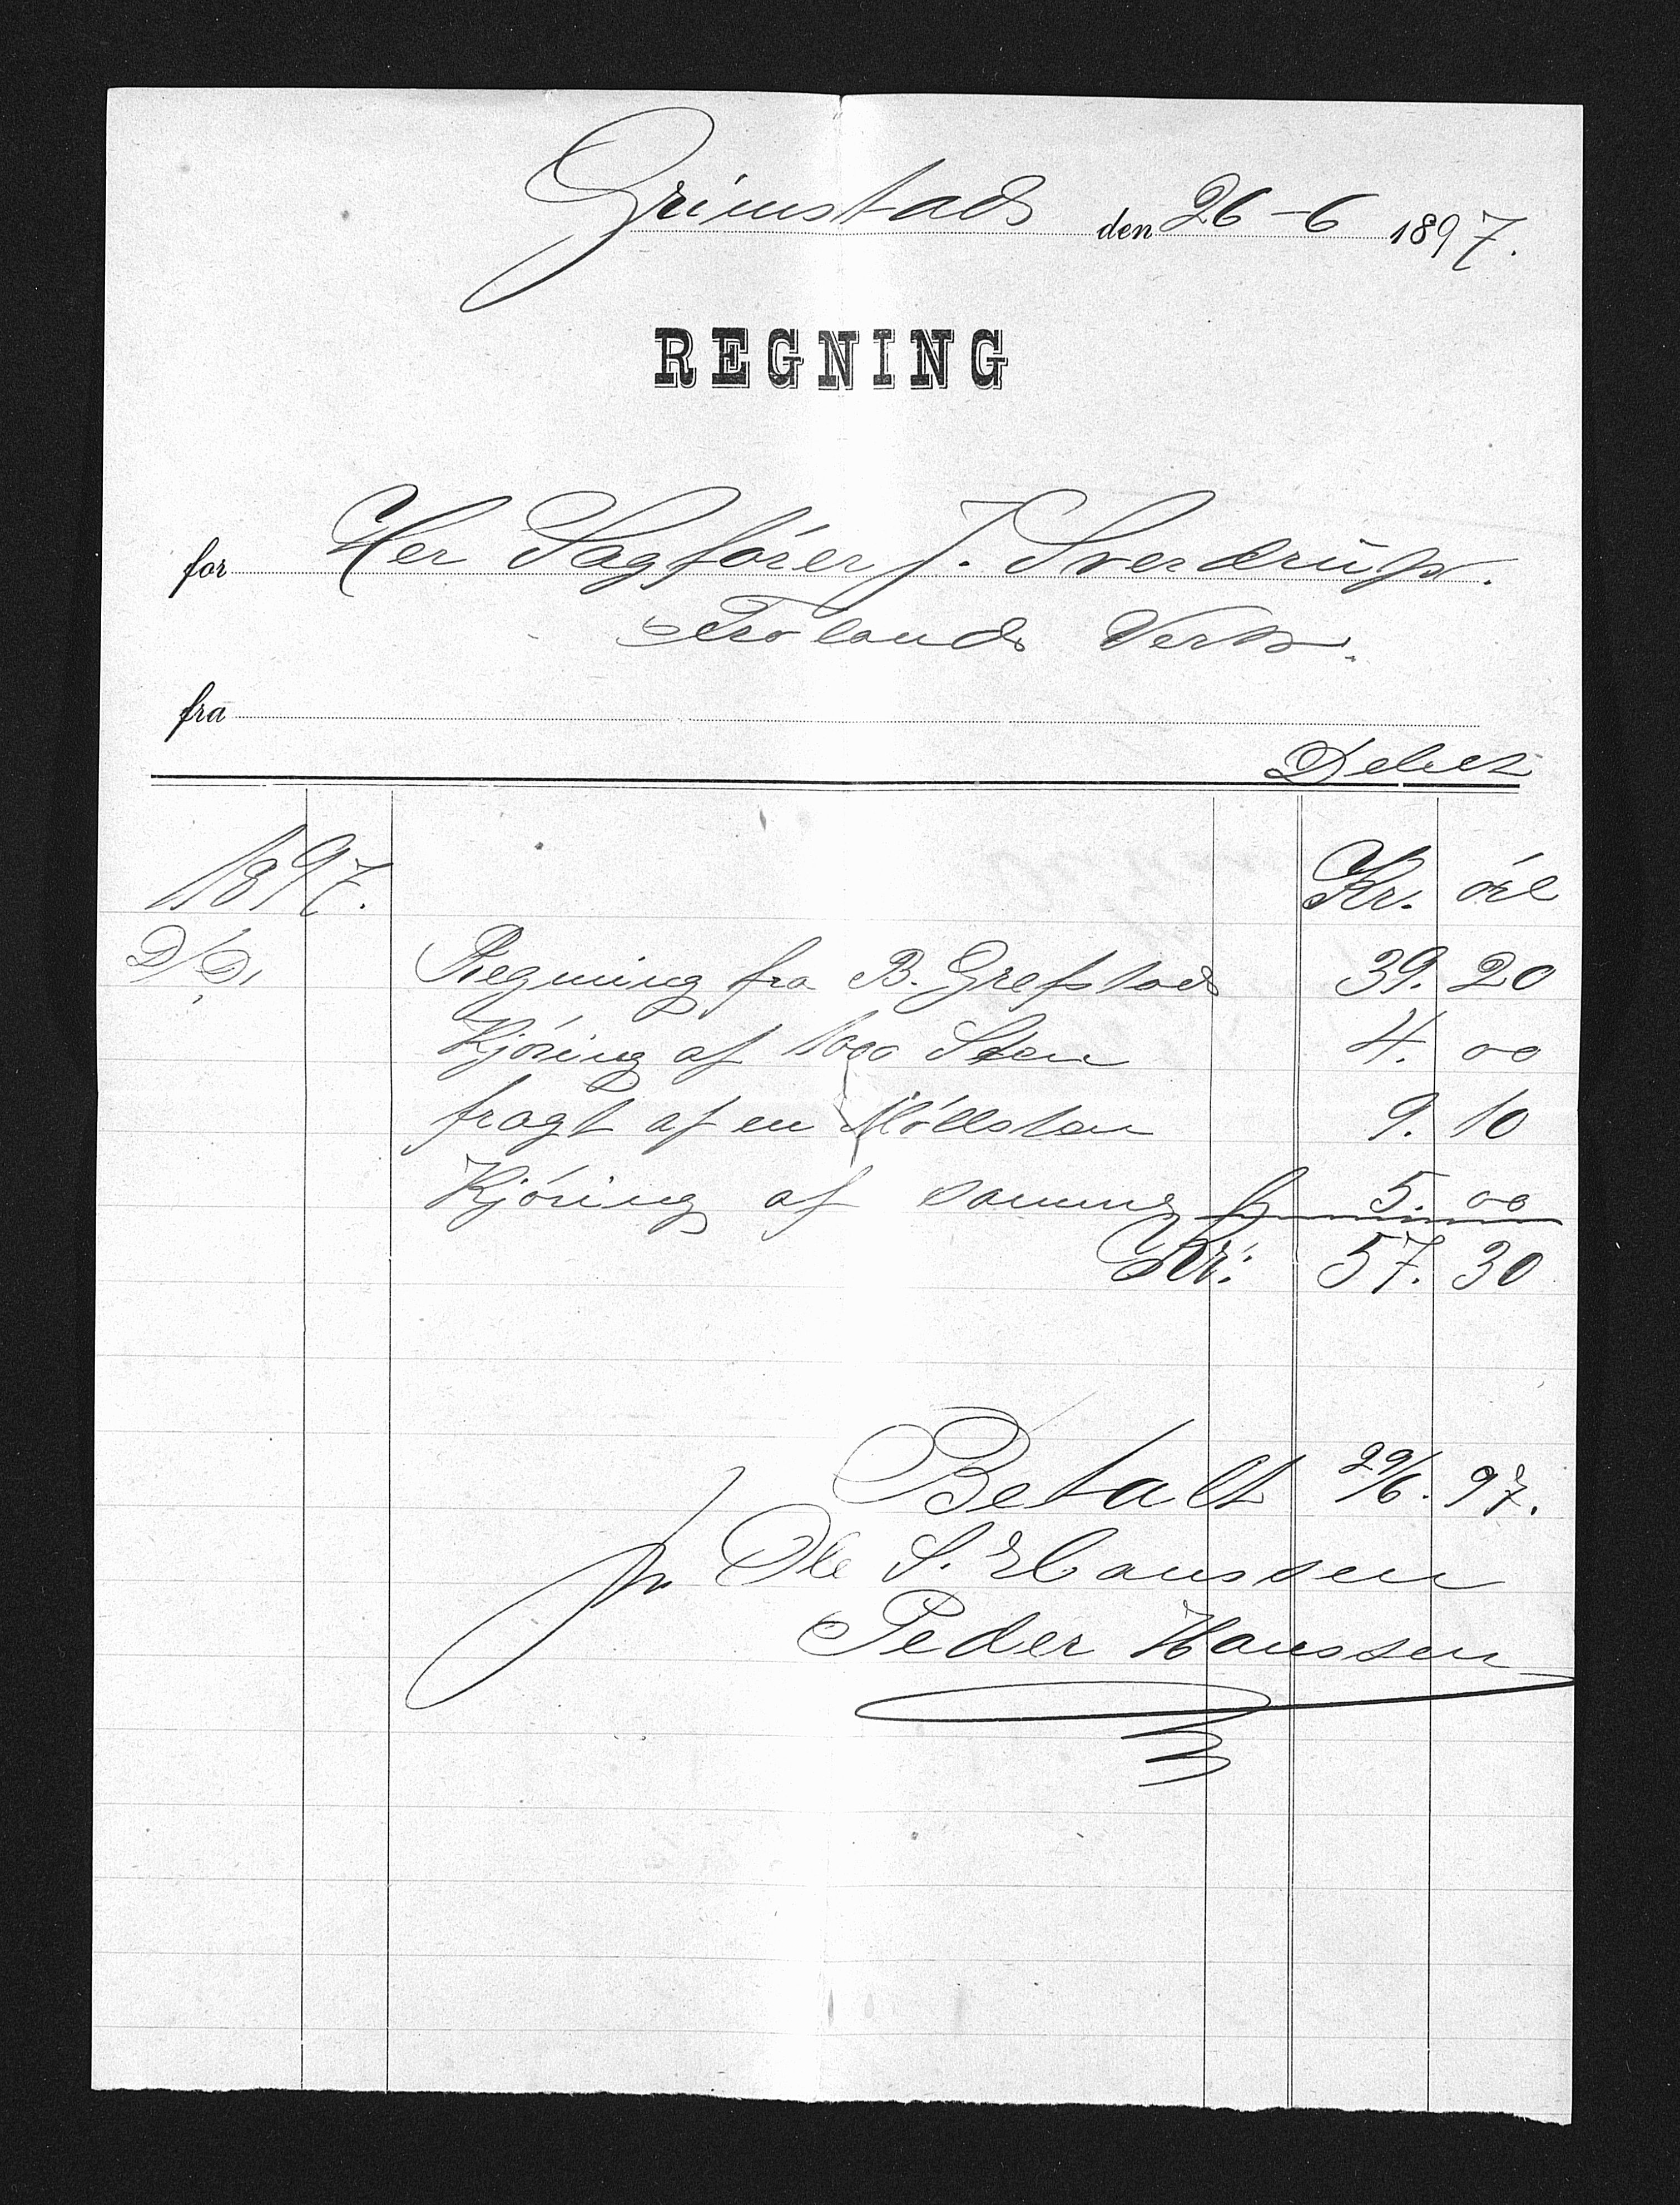 Grimstad den 26-6 1897.
REGNING
for Her Sagfører J. Sverdrup.
Frolands Verk.
fra
Debet
1897. Kr. öre
D/D. Regning fra B. Grefstad 39. 20
Kjöring af 1000 Sten 4. 00
fragt af en Möllsten 9. 10
Kjöring af samme 5. 00
Kr: 57. 30
Betalt 29/6. 97.
pr Ole S. Hanssen
Peder Hanssen